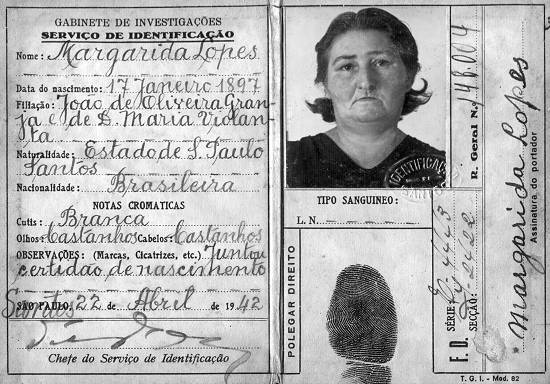 GABINETE DE INVESTIGAÇÕES
SERVIÇO DE IDENTIFICAÇÃO
Nome: Margarida Lopes
Data do nascimento: 17 Janeiro 1897
Filiação: João de Oliveira Gran-
ja e de D. Maria Violan-
ta
Naturalidade: Estado de S. Paulo
Santos
Nacionalidade: Brasileira
NOTAS CROMATICAS
Cutis: Branca
Olhos: Castanhos Cabelos: Castanhos
OBSERVAÇÕES: (Marcas, Cicatrizes, etc.) Juntou
certidão de nascimento
Santos
SÃO PAULO, 22 de Abril de 1942
Chefe do Serviço de Identificação
IDENTIFICAÇÃO
SANTOS
TIPO SANGUINEO:
L. N.
POLEGAR DIREITO
R. Geral N.º 48.004
F. D.
SÉRIE:
SECÇÃO:
Margarida Lopes
Assinatura do portador
T. G. I. - Mod. 82